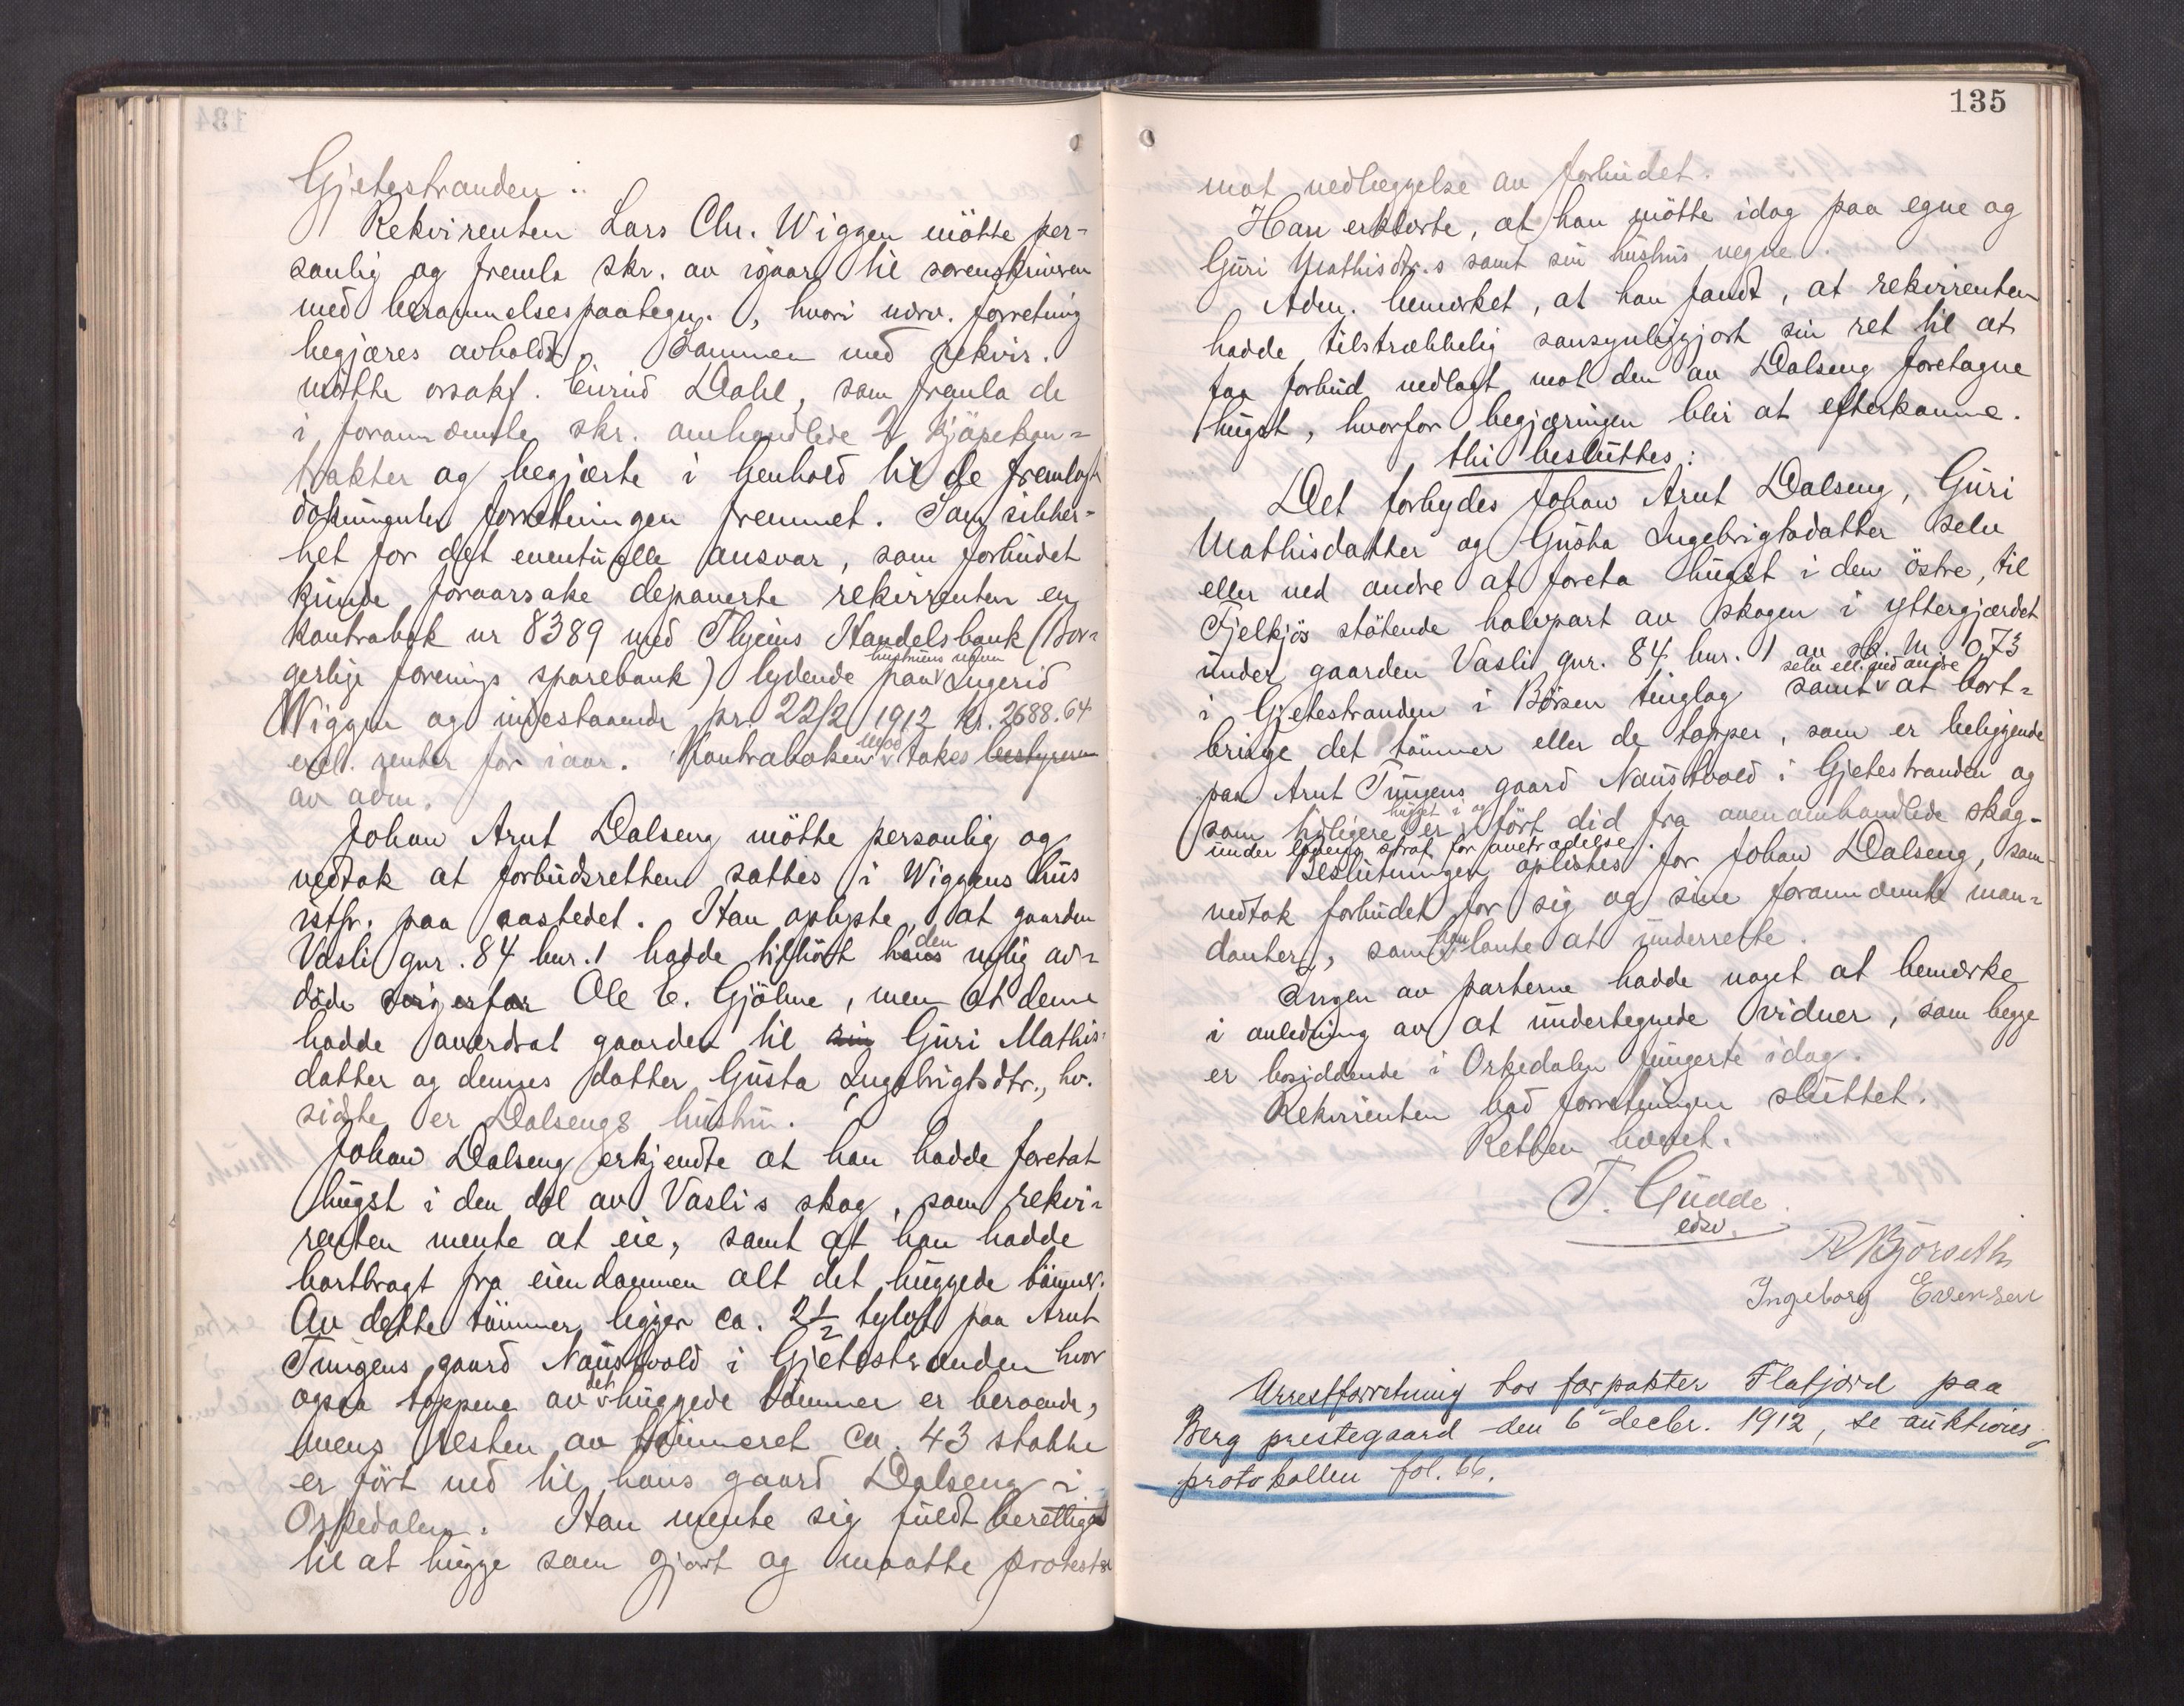 Gjetestranden:
Rekvirenten Lars Chr. Wiggen mötte per-
sonlig og fremla skr. av igaar til sorenskriveren
med berammelsespaategn., hvori nærv. forretning
begjæres avholdt. Sammen med rekvir.
mötte orsakf. Eivind Dahl, som fremla de
i forannævnte skr. omhandlede 2 kjöpekon-
trakter og begjærte i henhold til de fremlagte
dokumenter forretningen fremmet. Som sikker-
het for det eventuelle ansvar, som forbudet
kunde foraarsake deponerte rekvirenten en
kontrabok nr 8389 med Thjems Handelsbank (Bor-
gerlige forenings sparebank) lydende paa hustruens navn Ingerid
Wiggen og indestaaende pr. 22/2 1912 kr. 2688.64
excl. renter for iaar. Kontraboken mod takes bestyreren
av adm.
Johan Arnt Dalseng mötte personlig og
vedtok at forbudsretten sattes i Wiggens hus
istfr. paa aastedet. Han oplyste, at gaarden
Vasli gnr. 84 bnr. 1 hadde tilhört hans den nylig av-
döde svigerfar Ole E. Gjölme, men at denne
hadde averdrat gaarden til sin Guri Mathis-
datter og dennes datter Gusta Ingebrigtsdtr., hv.
sidste er Dalsengs hustru.
Johan Dalseng erkjendte at han hadde foretat
hugst i den del av Vaslis skog, som rekvi-
renten mente at eie, samt at han hadde
bortbragt fra eiendommen alt det huggede tömmer.
Av dette tömmer ligger ca. 2½ tylvt paa Arnt
Tungens gaard Naustvold i Gjetestranden hvor
ogsaa toppene av det huggede tömmer er beroende,
mens resten av tömmeret ca. 43 stokke
er fört ned til hans gaard Dalseng i
Orkedalen. Han mente sig fuldt berettiget
til at hugge som gjort og maatte protestere
135
mot nedlæggelse av forbudet.
Han erklærte, at han mötte idag paa egne og
Guri Mathisdtr.s samt sin hustrus vegne.
Adm. bemerket, at han fandt, at rekvirenten
hadde tilstrækkelig sansynliggjort sin ret til at
faa forbud nedlagt mot den av Dalseng foretagne
hugst, hvorfor begjæringen blir at efterkomme.
thi besluttes:
Det forbydes Johan Arnt Dalseng, Guri
Mathisdatter og Gusta Ingebrigtsdatter selv
eller ved andre at foreta hugst i den östre, til
Fjelkjös stötende halvpart av skogen i yttergjærdet
under gaarden Vasli gnr. 84 bnr. 1 av sk. m. 0,73
i Gjetestranden i Börsen tinglag samt selv ell. ved andre at bort-
bringe det tömmer eller de topper, som er beliggende
paa Arnt Tungens gaard Naustvold i Gjetestranden og
som tidligere er hugget i og fört did fra ovenomhandlede skog-
under lovens straf for overtrædelse.
Beslutningen oplæstes for Johan Dalseng, som
vedtok forbudet for sig og sine forannævnte man-
danter, som han lovte at underrette.
Ingen av parterne hadde noget at bemerke
i anledning av at undertegnede vidner, som begge
er bosiddende i Orkedalen fungerte idag.
Rekvirenten bad forretningen sluttet.
Retten hævet.
T. Gudde
edsv.
R Bjorseth
Ingeborg Evensen
Arrestforretning hos forpakter Flatjord paa
Berg prestegaard den 6te decbr. 1912, se auktions-
protokollen fol. 66.